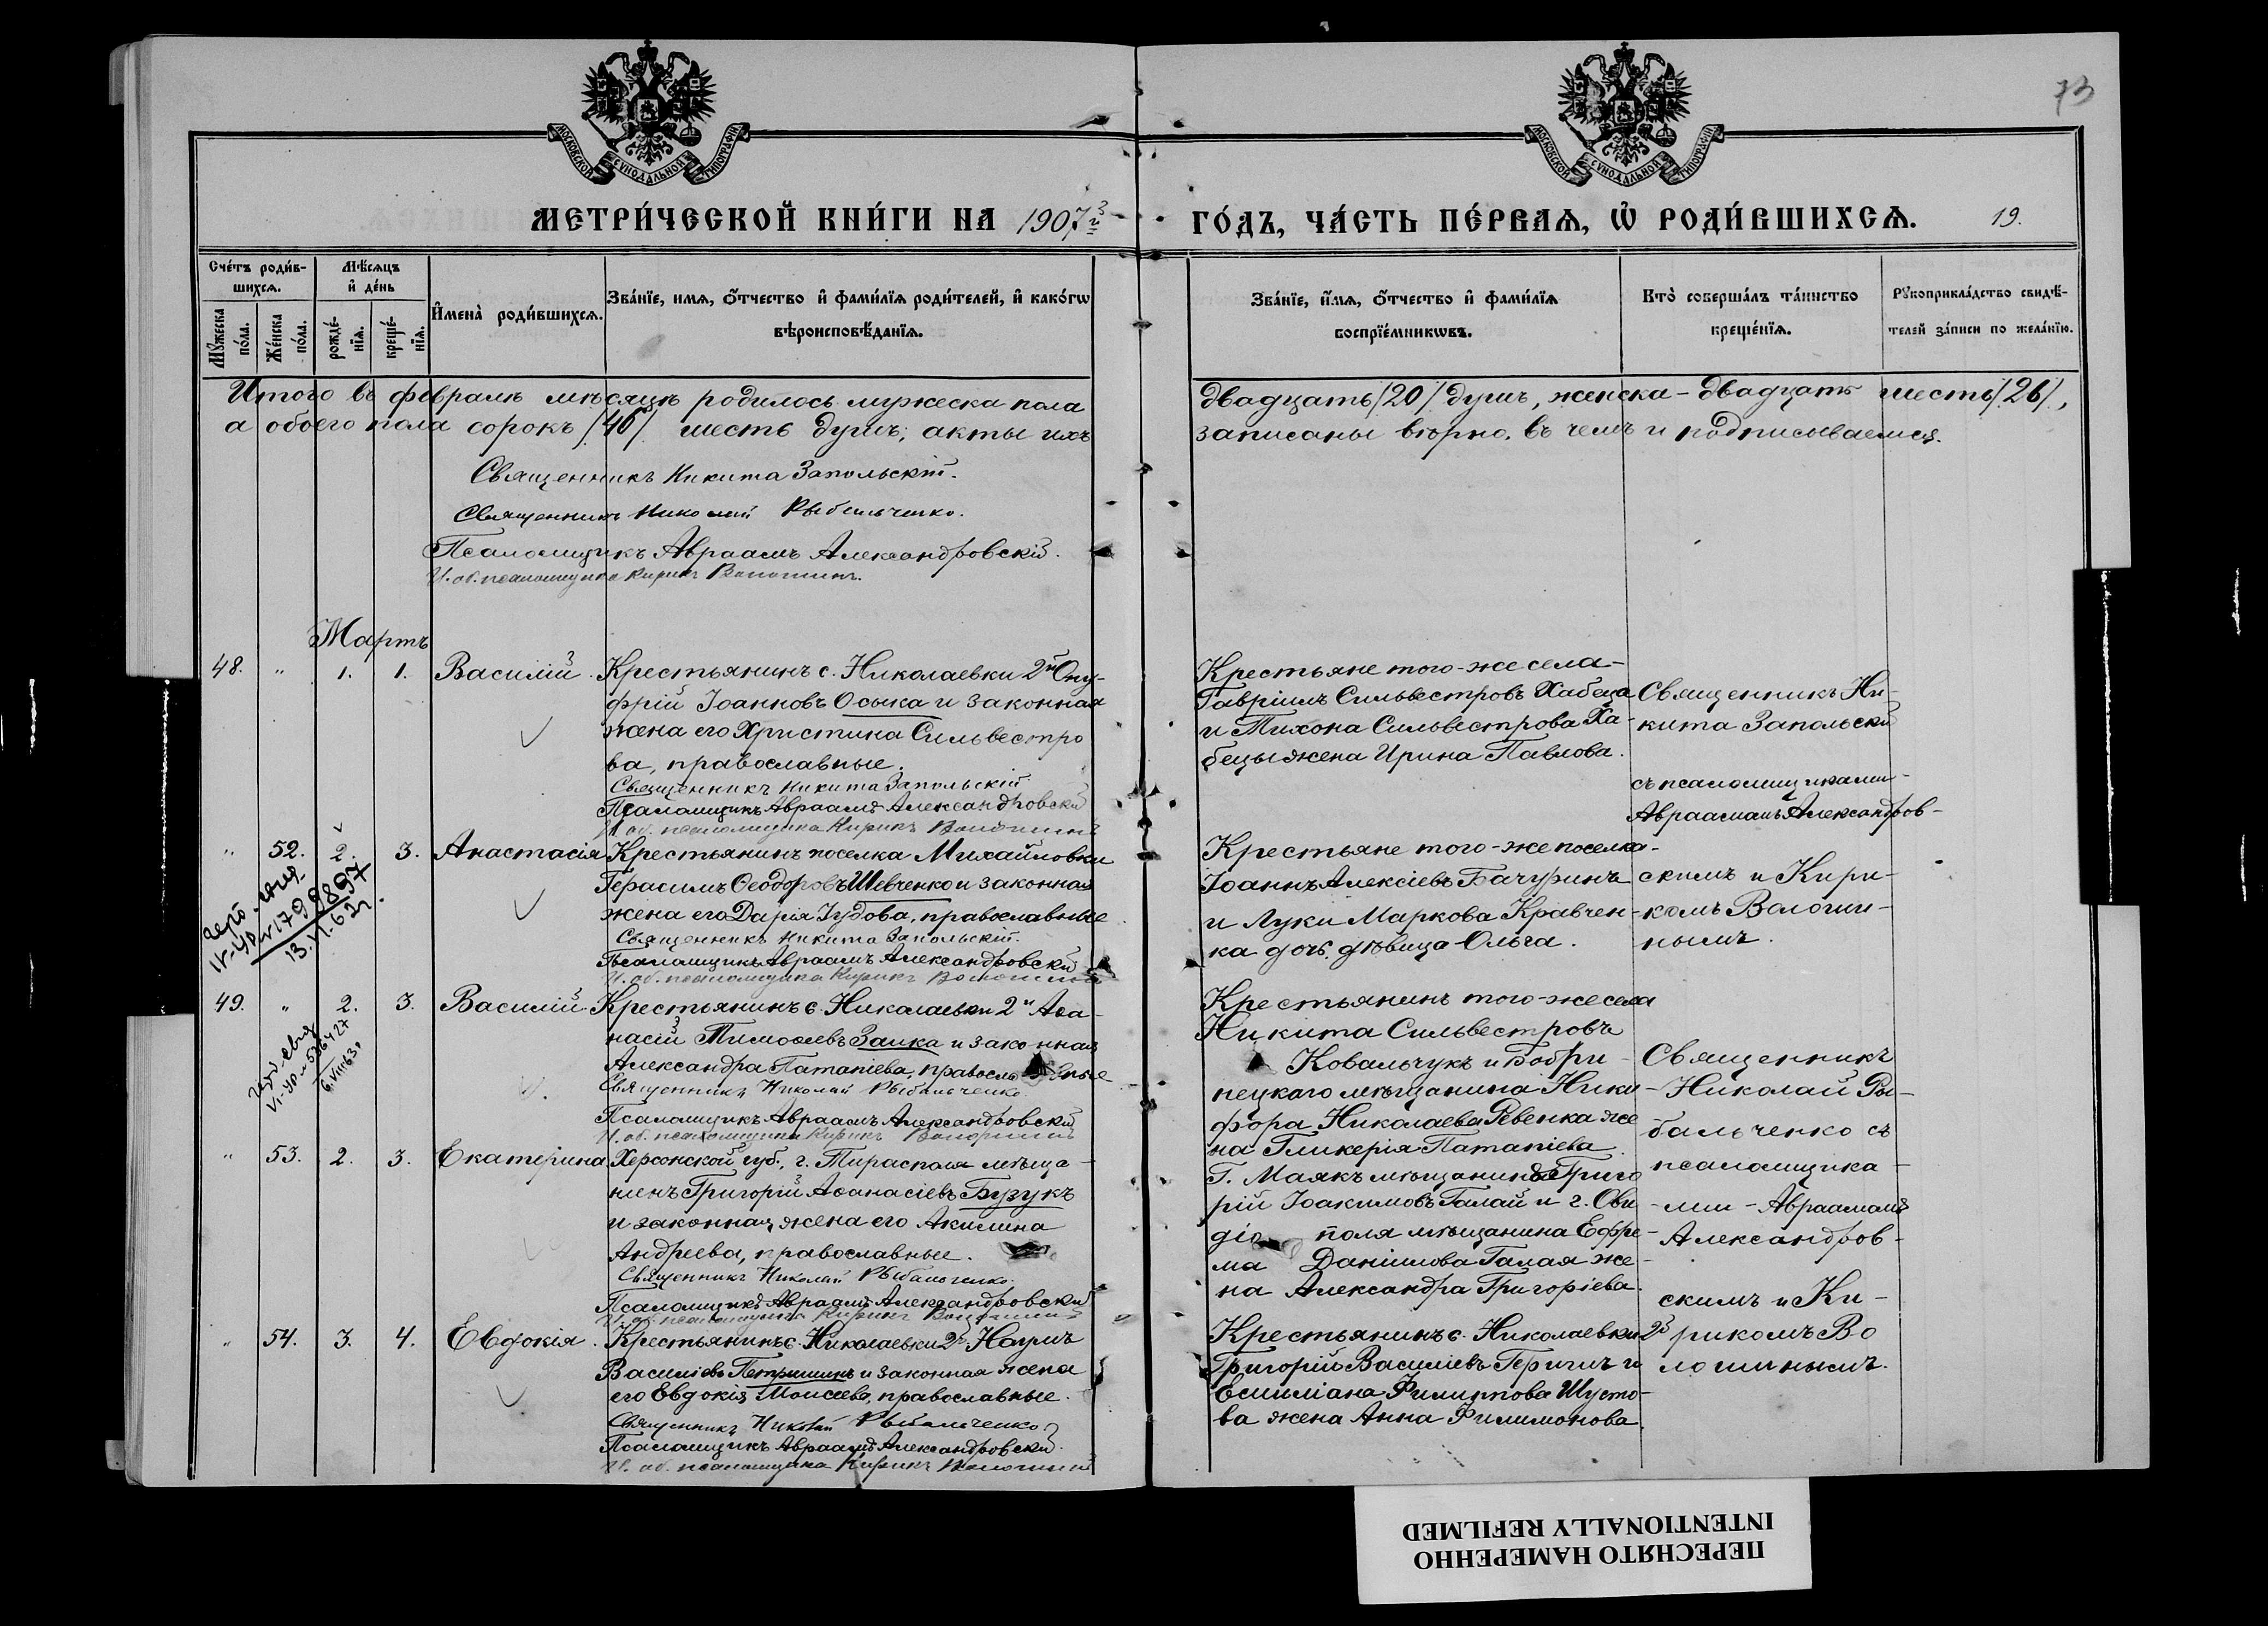 73
МОСКОВСКОЙ СѴНОДАЛЬНОЙ ТИПОГРАФІИ
МОСКОВСКОЙ СѴНОДАЛЬНОЙ ТИПОГРАФІИ
МЕТРИ́ЧЕСКОЙ КНИ́ГИ НА 1907й ГО́ДЪ, ЧА́СТЬ ПЕ́РВАѦ, Ѡ҆ РОДИ́ВШИХСѦ. 19.
Сче́тъ роди́в-
шихсѧ.
Мꙋ́жеска по́ла.
Же́нска по́ла.
Мѣ́сѧцъ
и҆ де́нь
рожде́-
нїѧ.
креще́-
нїѧ.
И҆мена̀ роди́вшихсѧ.
Зва́нїе, имѧ, ѻ҆́тчество и҆ фами́лїѧ роди́телей, и҆ како́гѡ
вѣроисповѣ́данїѧ.
Зва́нїе, и҆́мѧ, ѻ҆́тчество и҆ фами́лїѧ
воспрїе́мникѡвъ.
Кто̀ соверша́лъ та́инство
креще́нїѧ.
Рꙋкоприкла́дство свидѣ́-
телей за́писи по жела́нїю.
Итого въ февралѣ мѣсяцѣ родилось мужеска пола двадцать /20/ душъ, женска - двадцать шесть /26/,
а обоего пола сорокъ /46/ шесть душъ; акты ихъ записаны вѣрно. въ чемъ и подписываемся.
Священникъ Никита Запольскій.
Священникъ Николай Рыбальченко.
Псаломщикъ Авраамъ Александровскій.
И. об. псаломщика Кирикъ Волошинъ.
Мартъ
48. " 1. 1. Василій. Крестьянинъ с. Николаевки 2й Ону-
фрій Іоанновъ Осыка и законная
жена его Христина Сильвестро
ва, православные.
Священникъ Никита Запольскій
Псаломщикъ Авраамъ Александровскій
И. об. псаломщика Кирикъ Волошинъ
Крестьяне того-же села-
Гавріилъ Сильвестровъ Хабеца
и Тихона Сильвестрова Ха-
бецы жена Ирина Павлова.
Священникъ Ни-
кита Запольскій
съ псаломщиками-
Авраамомъ Александров-
" 52. 2. 3. Анастасія Крестьянинъ поселка Михайловки
Герасимъ Ѳеодоровъ Шевченко и законная
жена его Дарія Іудова, православные
Священникъ Никита Запольскій.
Псаломщикъ Авраамъ Александровскій
И. об. псаломщика Кирикъ Волошинъ
13.VI.62г.
Крестьяне того-же поселка-
Іоаннъ Алексіевъ Бачуринъ
и Луки Маркова Кравчен-
ка дочь дѣвица Ольга.
скимъ и Кири-
комъ Волоши-
нымъ.
49. " 2. 3. Василій Крестьянинъ с. Николаевки 2й Аѳа-
насій Тимоѳеевъ Заика и законная
Александра Патапіева, православные
Священникъ Николай Рыбальченко
Псаломщикъ Авраамъ Александровскій
И. об. псаломщика Кирикъ Волошинъ
Крестьянинъ того-же села
Никита Сильвестровъ
Ковальчукъ и Бобри-
нецкаго мѣщанина Ники-
фора Николаева Ревенка же
на Гликерія Патапіева.
Священникъ
Николай Ры-
бальченко съ
псаломщика-
" 53. 2. 3. Екатерина Херсонской губ., г. Тирасполя мѣща-
нинъ Григорій Аѳанасіевъ Бузукъ
и законная жена его Акилина
Андреева, православные.
Священникъ Николай Рыбальченко
Псаломщикъ Авраамъ Александровскій
И. об. псаломщика Кирикъ Волошинъ
Г. Маякъ мѣщанинъ Григо
рій Іоакимовъ Галай и г. Ови
діо поля мѣщанина Ефре-
ма Даніилова Галая же-
на Александра Григоріева.
ми - Авраамомъ
Александров-
скимъ и Ки-
" 54. 3. 4. Евдокія. Крестьянинъ с. Николаевки 2й Наумъ
Василіевъ Петришинъ и законная жена
его Евдокія Моисеева, православные.
Священникъ Николай Рыбальченко
Псаломщикъ Авраамъ Александровскій.
И. об. псаломщика Кирикъ Волошинъ
Крестьянинъ с. Николаевки 2й
Григорій Василіевъ Геригъ и
Емиліана Филиппова Шусто-
ва жена Анна Филимонова.
рикомъ Во
лошинымъ.
ПЕРЕСНЯТО НАМЕРЕННО
INTENTIONALLY REFILMED